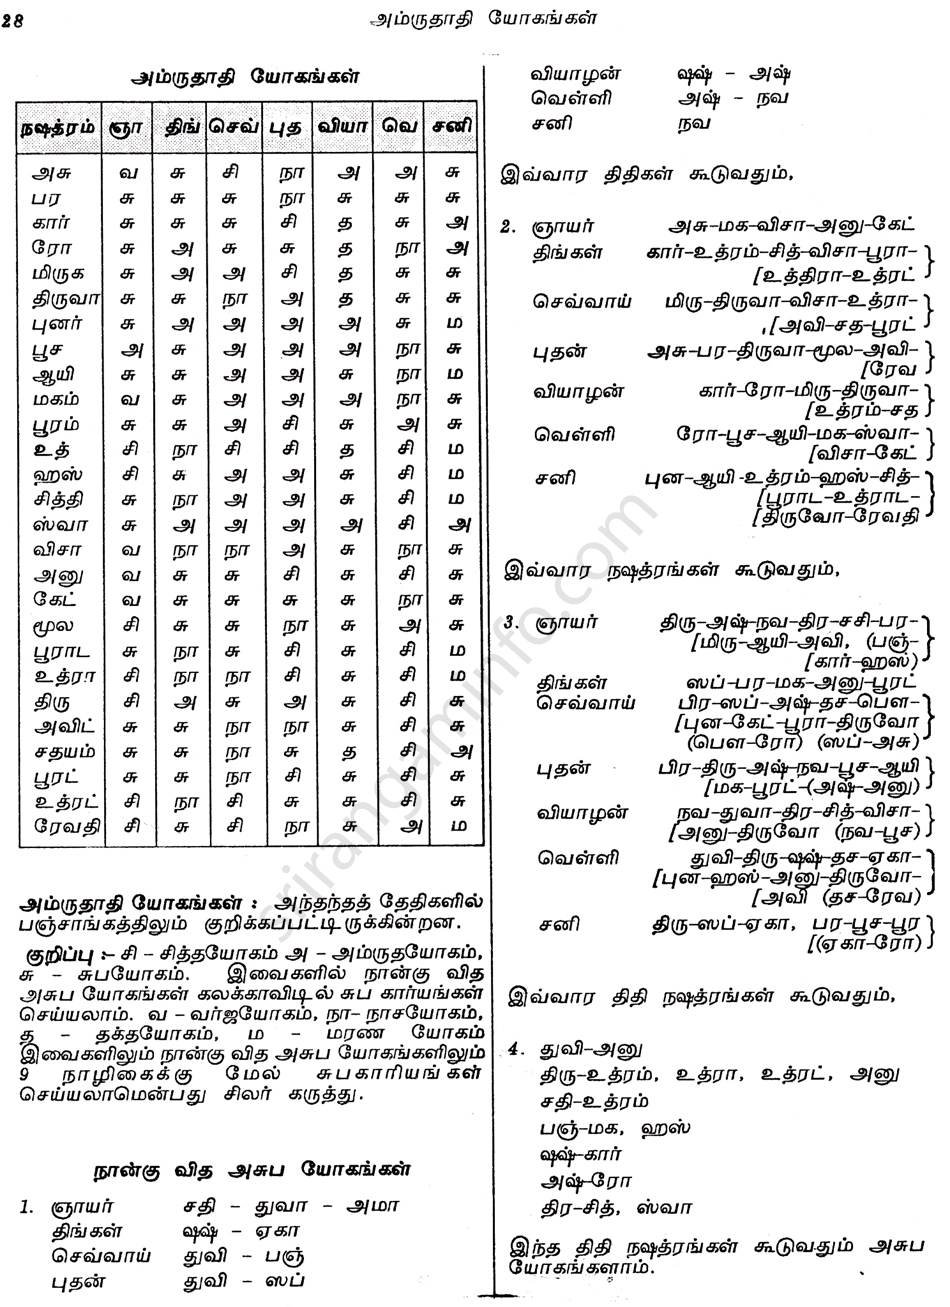 28
அம்ருதாதி யோகங்கள்
அம்ருதாதி யோகங்கள்
நஷத்ரம் ஞா திங் செவ் புத வியா வெ சனி
அசு வ சு சி நா அ அ சு
பர சு சு சு நா சு சு சு
கார் சு சு சு சி த சு அ
ரோ சு அ சு சு த நா அ
மிருக சு அ அ சி த சு சு
திருவா சு சு நா அ த சு சு
புனர் சு அ அ அ அ சு ம
பூச அ சு அ அ அ நா சு
ஆயி சு சு அ அ சு நா ம
மகம் வ சு அ அ அ நா சு
பூரம் சு சு அ சி சு அ சு
உத் சி நா சி சி த சி ம
ஹஸ் சி சு அ அ சு சி ம
சித்தி சு நா அ அ சு சி ம
ஸ்வா சு அ அ அ அ சி அ
விசா வ நா நா அ சு நா சு
அனு வ சு சு சி சு சி சு
கேட் வ சு சு சு சு நா சு
மூல சி சு சு நா சு அ சு
பூராட சு நா சு சி சு சி ம
உத்ரா சி நா நா சி சு சி ம
திரு சி அ சு அ சு சி சு
அவிட் சு சு நா நா சு சி சு
சதயம் சு சு நா சு த சி அ
பூரட் சு சு நா சி சு சி சு
உத்ரட் சி நா சி சி சு சி சு
ரேவதி சி சு சி நா சு அ ம
அம்ருதாதி யோகங்கள் : அந்தந்தத் தேதிகளில்
பஞ்சாங்கத்திலும் குறிக்கப்பட்டிருக்கின்றன.
குறிப்பு :- சி – சித்தயோகம் அ – அம்ருதயோகம்,
சு – சுபயோகம். இவைகளில் நான்கு வித
அசுப யோகங்கள் கலக்காவிடில் சுப கார்யங்கள்
செய்யலாம். வ – வர்ஜயோகம், நா- நாசயோகம்,
த – தக்தயோகம், ம – மரண யோகம்
இவைகளிலும் நான்கு வித அசுப யோகங்களிலும்
9 நாழிகைக்கு மேல் சுபகாரியங்கள்
செய்யலாமென்பது சிலர் கருத்து.
நான்கு வித அசுப யோகங்கள்
1. ஞாயர் சதி – துவா – அமா
திங்கள் ஷஷ் – ஏகா
செவ்வாய் துவி – பஞ்
புதன் துவி – ஸப்
வியாழன் ஷஷ் – அஷ்
வெள்ளி அஷ் – நவ
சனி நவ
இவ்வார திதிகள் கூடுவதும்,
2. ஞாயர் அசு–மக–விசா–அனு–கேட்
திங்கள் கார்–உத்ரம்–சித்–விசா–பூரா–
[உத்திரா–உத்ரட்
செவ்வாய் மிரு–திருவா–விசா–உத்ரா–
[அவி–சத–பூரட்
புதன் அசு–பர–திருவா–மூல–அவி–
[ரேவ
வியாழன் கார்–ரோ–மிரு–திருவா–
[உத்ரம்–சத
வெள்ளி ரோ–பூச–ஆயி–மக–ஸ்வா–
[விசா–கேட்
சனி புன–ஆயி–உத்ரம்–ஹஸ்–சித்–
[பூராட–உத்ராட–
[திருவோ–ரேவதி
இவ்வார நஷத்ரங்கள் கூடுவதும்,
3. ஞாயர் திரு–அஷ்–நவ–திர–சசி–பர–
[மிரு–ஆயி–அவி, (பஞ்–
[கார்–ஹஸ்)
திங்கள் ஸப்–பர–மக–அனு–பூரட்
செவ்வாய் பிர–ஸப்–அஷ்–தச–பௌ–
[புன–கேட்–பூரா–திருவோ
(பௌ–ரோ) (ஸப்–அசு)
புதன் பிர–திரு–அஷ்–நவ–பூச–ஆயி
[மக–பூரட்–(அஷ்–அனு)
வியாழன் நவ–துவா–திர–சித்–விசா–
[அனு–திருவோ (நவ–பூச)
வெள்ளி துவி–திரு–ஷஷ்–தச–ஏகா–
[புன–ஹஸ்–அனு–திருவோ–
[அவி (தச–ரேவ)
சனி திரு–ஸப்–ஏகா, பர–பூச–பூர
[(ஏகா–ரோ)
இவ்வார திதி நஷத்ரங்கள் கூடுவதும்,
4. துவி–அனு
திரு–உத்ரம், உத்ரா, உத்ரட், அனு
சதி–உத்ரம்
பஞ்–மக, ஹஸ்
ஷஷ்–கார்
அஷ்–ரோ
திர–சித், ஸ்வா
இந்த திதி நஷத்ரங்கள் கூடுவதும் அசுப
யோகங்களாம்.
srirangaminfo.com